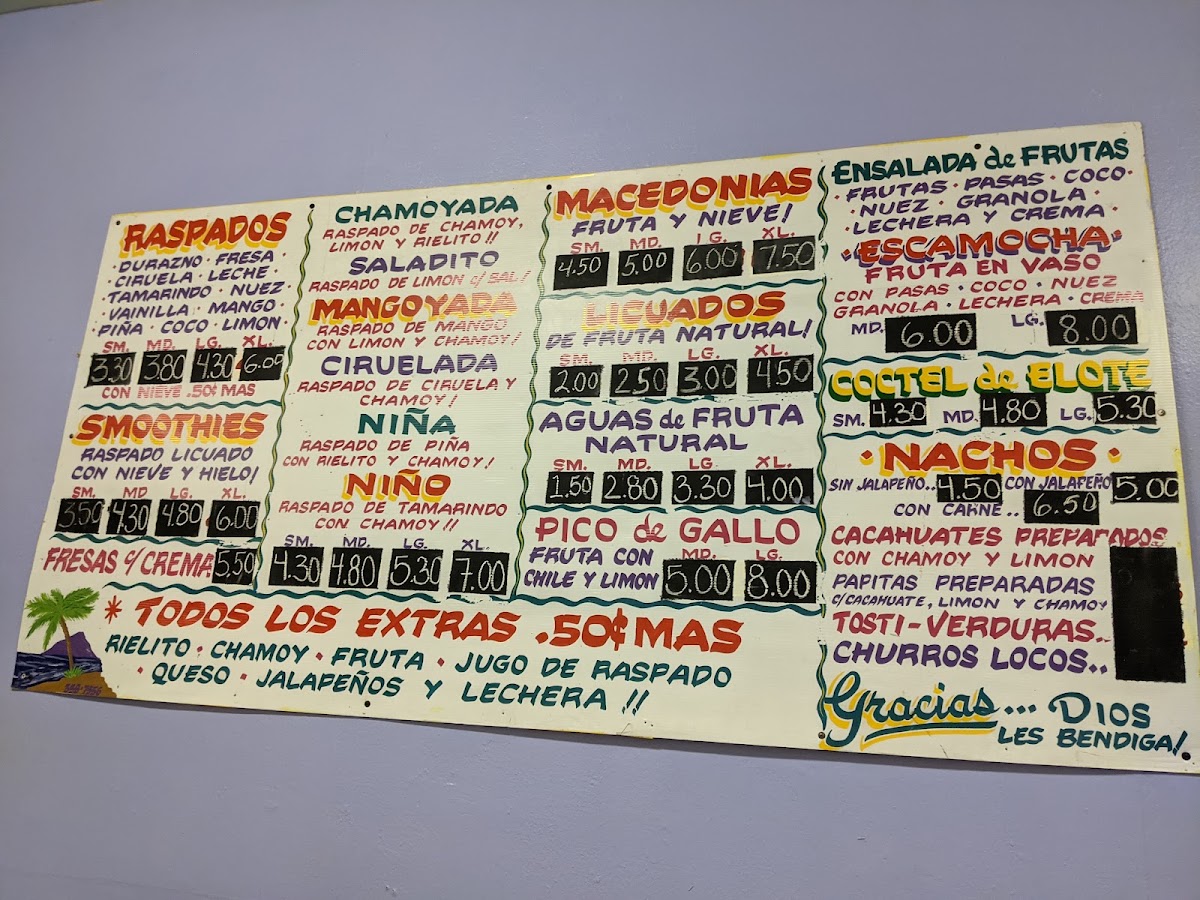 RASPADOS
· DURAZNO · FRESA ·
· CIRUELA · LECHE ·
TAMARINDO · NUEZ
VAINILLA · MANGO ·
PIÑA · COCO · LIMON ·
SM. MD. LG. XL.
3.30 3.80 4.30 6.05
CON NIEVE .50¢ MAS
SMOOTHIES
RASPADO LICUADO
CON NIEVE Y HIELO!
SM. MD LG. XL.
3.50 4.30 4.80 6.00
FRESAS C/ CREMA 5.50
CHAMOYADA
RASPADO DE CHAMOY,
LIMON Y RIELITO!!
SALADITO
RASPADO DE LIMON C/ SAL!
MANGOYADA
RASPADO DE MANGO
CON LIMON Y CHAMOY!
CIRUELADA
RASPADO DE CIRUELA Y
CHAMOY!
NIÑA
RASPADO DE PIÑA
CON RIELITO Y CHAMOY!
NIÑO
RASPADO DE TAMARINDO
CON CHAMOY!!
SM. MD. LG. XL.
4.30 4.80 5.30 7.00
MACEDONIAS
FRUTA Y NIEVE!
SM. MD. LG. XL.
4.50 5.00 6.00 7.50
LICUADOS
DE FRUTA NATURAL!
SM. MD. LG. XL.
2.00 2.50 3.00 4.50
AGUAS de FRUTA
NATURAL
SM. MD. LG. XL.
1.50 2.80 3.30 4.00
PICO de GALLO
FRUTA CON MD. LG.
CHILE Y LIMON 5.00 8.00
* TODOS LOS EXTRAS .50¢ MAS
RIELITO · CHAMOY · FRUTA · JUGO DE RASPADO
· QUESO · JALAPEÑOS Y LECHERA !!
ENSALADA de FRUTAS
· FRUTAS · PASAS · COCO ·
· NUEZ · GRANOLA ·
LECHERA Y CREMA ·
· ESCAMOCHA ·
FRUTA EN VASO
CON PASAS · COCO · NUEZ
GRANOLA · LECHERA · CREMA
MD. 6.00 LG. 8.00
COCTEL de ELOTE
SM. 4.30 MD. 4.80 LG. 5.30
· NACHOS ·
SIN JALAPEÑO.. 4.50 CON JALAPEÑO 5.00
CON CARNE .. 6.50
CACAHUATES PREPARADOS
CON CHAMOY Y LIMON
PAPITAS PREPARADAS
C/CACAHUATE, LIMON Y CHAMOY
TOSTI-VERDURAS..
CHURROS LOCOS..
Gracias... DIOS
LES BENDIGA!